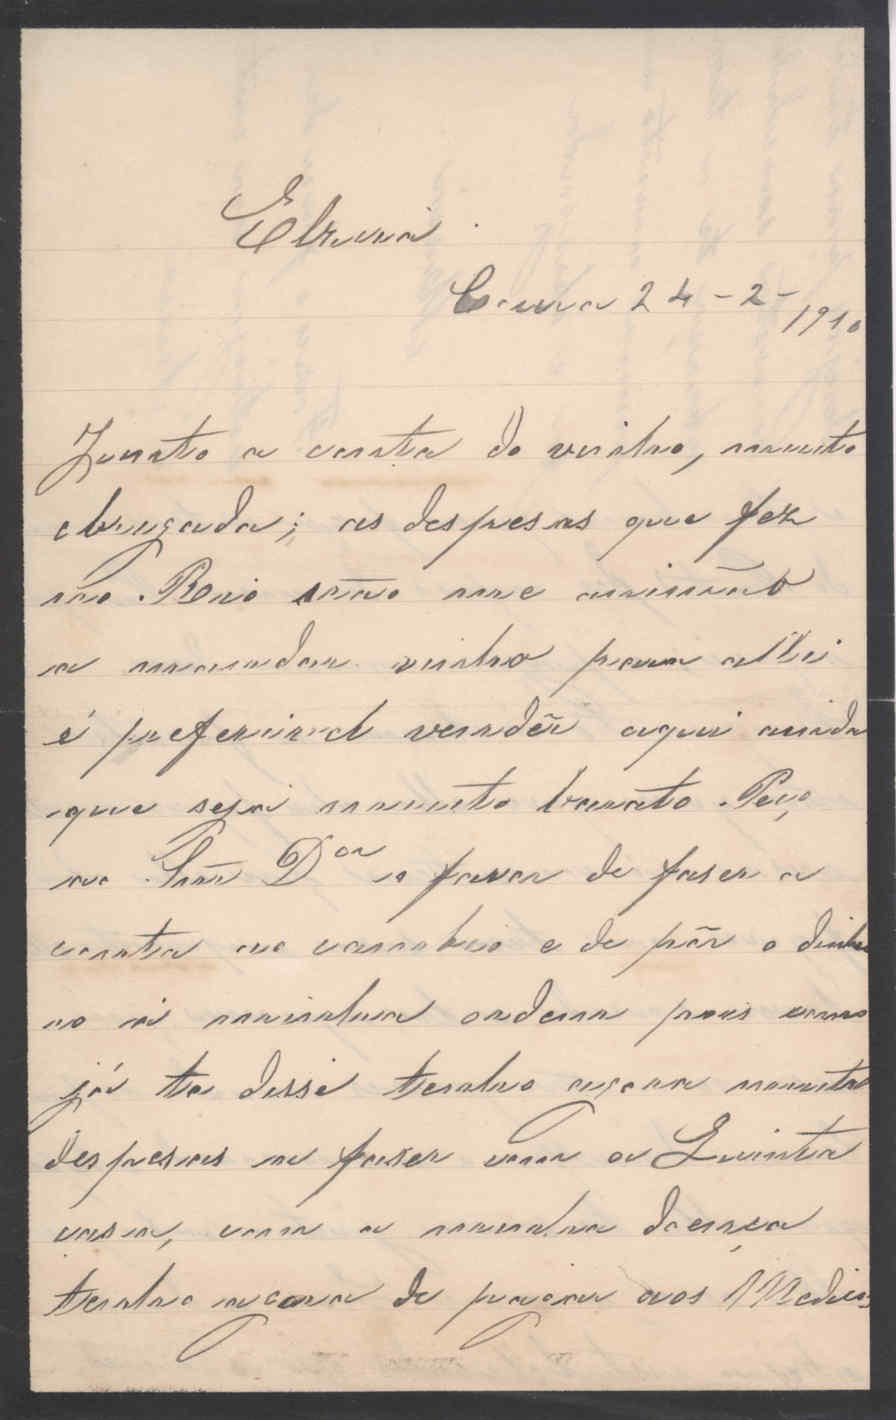 Elzira
Caura 24-2-
1910
Junto a conta do vinho, muito
obrugada; as despesas que fez
no Rio são me animão
a mandar vinho para alli
é preferivel vendêr aqui ainda
que seja muito barato. Peço
ao Snr Dor o favor de faser a
conta ao cambio e de pôr o dinhe
ro á minha ordem pois como
já te disse tenho agora muita
despesas a faser com a Quinta
casa, com a minha doença
tenho agora de pagar aos Medicos